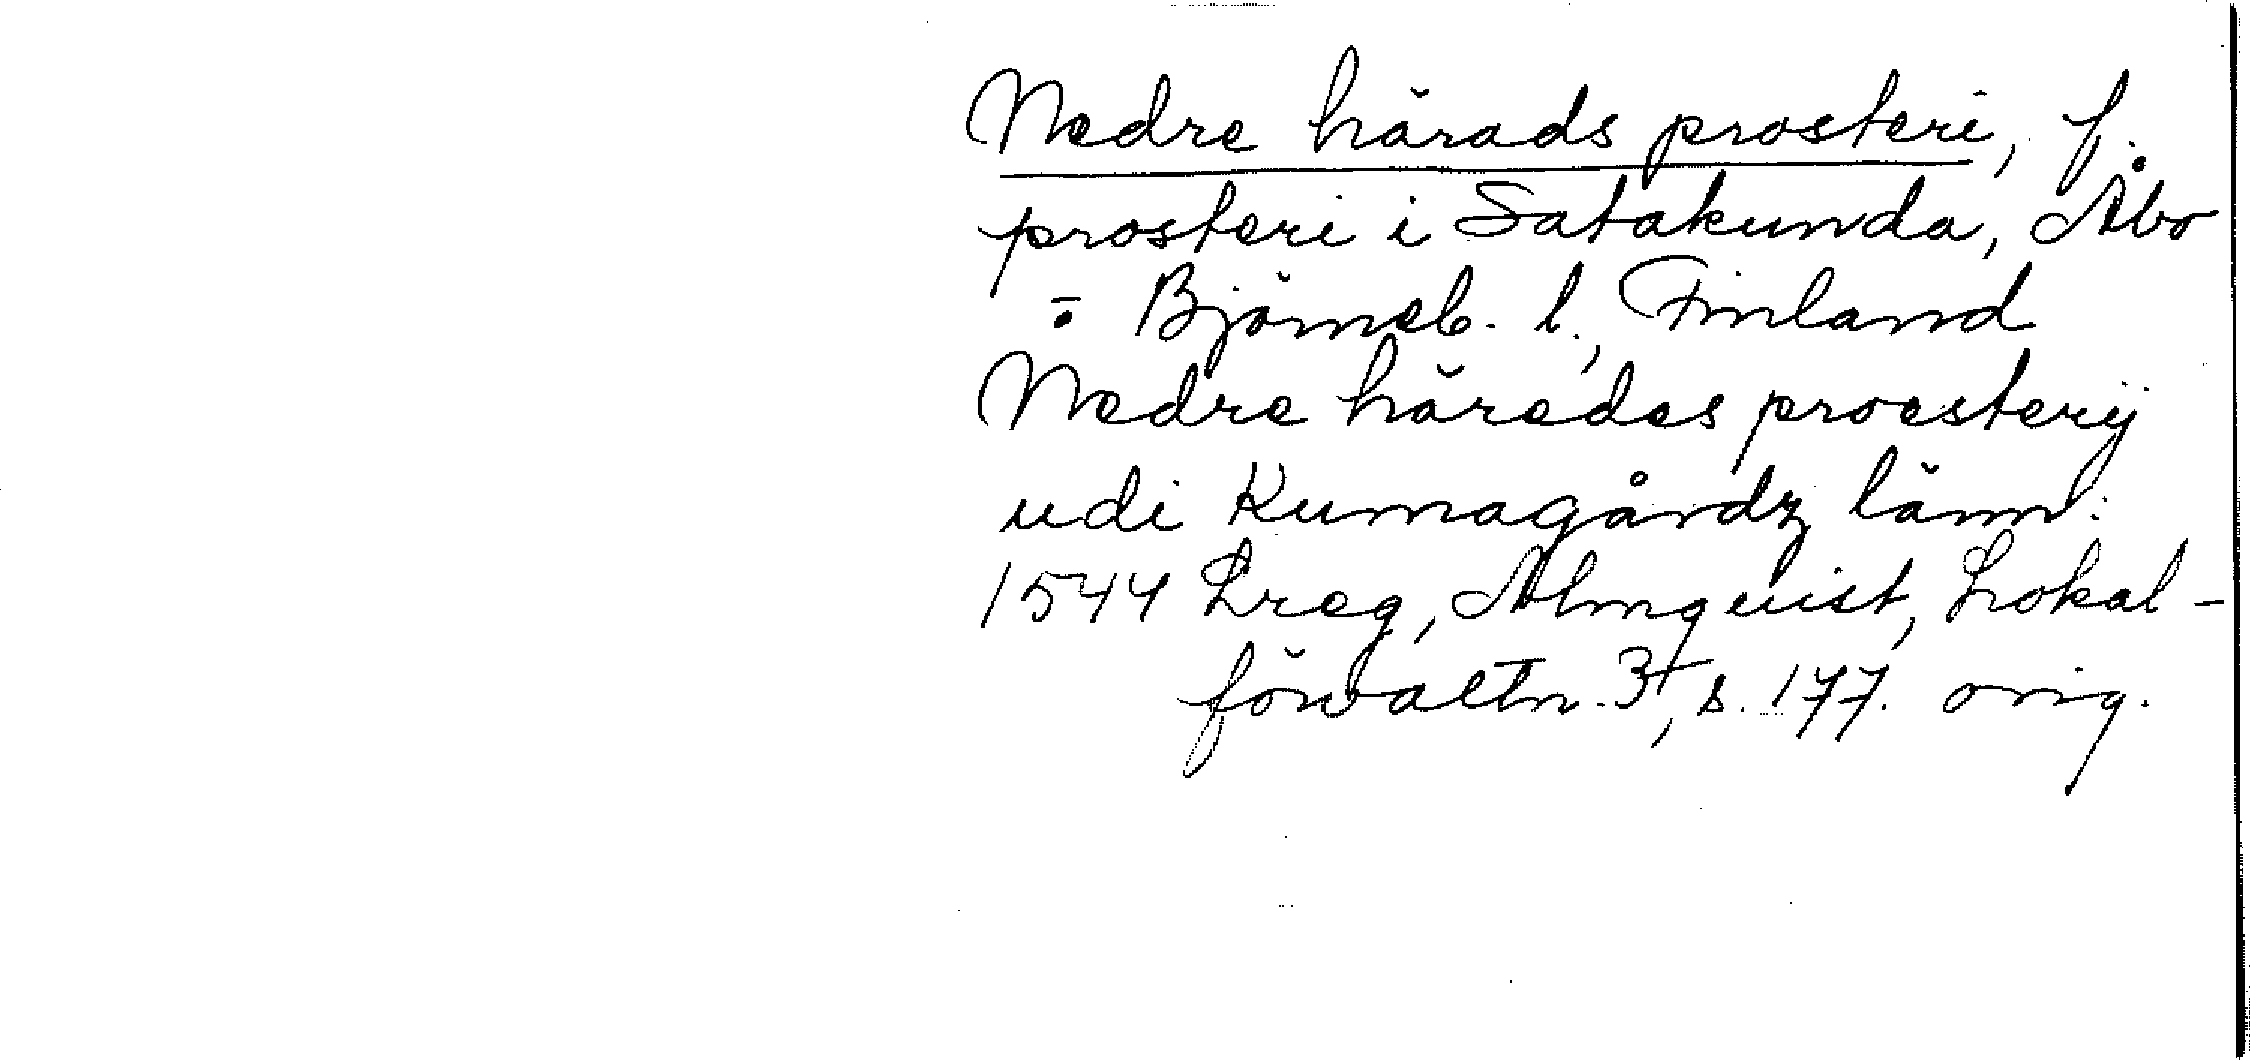 Nedre härads prosteri, f.
prosteri i Satakunda, Åbo
o. Björneb. l., Finland
Nedre häredes proesterij
udi Kumagårdz länn:
1544 Lreg, Almquist, Lokal-
förvaltn. 3, s. 177. orig.